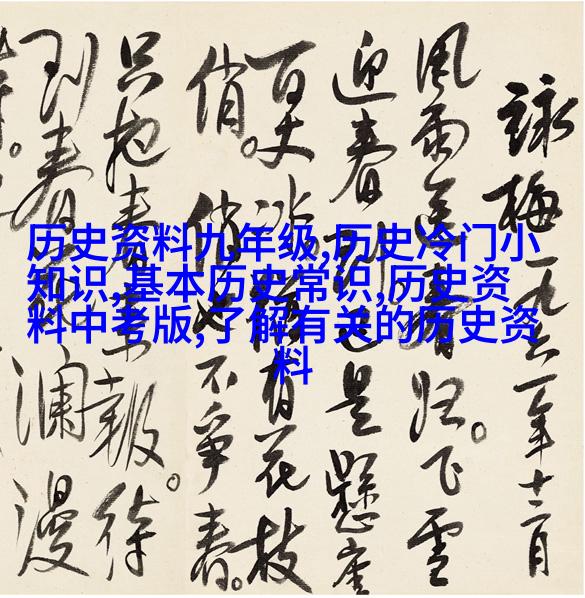 詠梅一九六一年十二月
風雨送春歸。飞雪
迎春到已是懸崖
百丈冰猶有花枝
俏。俏也不爭春。
只把春來報。待
到春瀾漫
历史资料九年级,历史冷门小
知识,基本历史常识,历史资
料中考版,了解有关的历史资
料